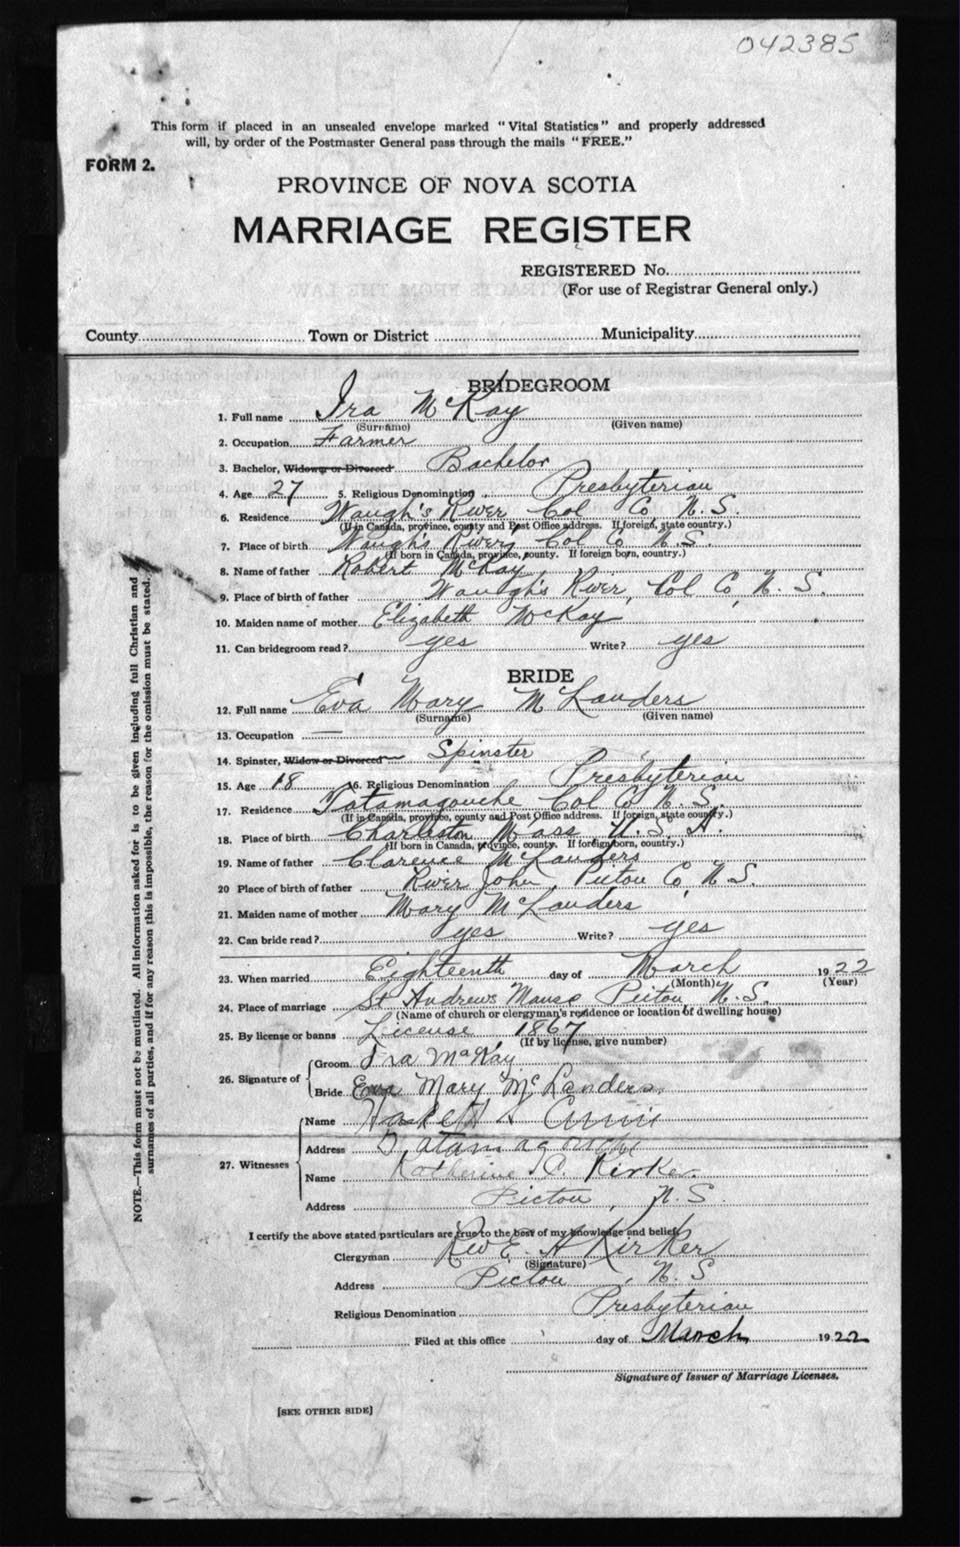 042385
This form if placed in an unsealed envelope marked "Vital Statistics" and properly addressed
will, by order of the Postmaster General pass through the mails "FREE."
FORM 2.
PROVINCE OF NOVA SCOTIA
MARRIAGE REGISTER
REGISTERED No.
(For use of Registrar General only.)
County Town or District Municipality
BRIDEGROOM
1. Full name Ira McKay
(Surname) (Given name)
2. Occupation Farmer
3. Bachelor, Widower or Divorced Bachelor
4. Age 27 5. Religious Denomination Presbyterian
6. Residence Waugh's River Col Co, N.S.
(If in Canada, province, county and Post Office address. If foreign, state country.)
7. Place of birth Waugh's River, Col Co N.S.
(If born in Canada, province, county. If foreign born, country.)
8. Name of father Robert McKay
9. Place of birth of father Waugh's River, Col Co, N.S.
10. Maiden name of mother Elizabeth McKay
11. Can bridegroom read? yes Write? yes
BRIDE
12. Full name Eva Mary McLanders
(Surname) (Given name)
13. Occupation —
14. Spinster, Widow or Divorced Spinster
15. Age 18 16. Religious Denomination Presbyterian
17. Residence Tatamagouche Col Co N.S.
(If in Canada, province, county and Post Office address. If foreign, state country.)
18. Place of birth Charleston Mass U.S.A.
(If born in Canada, province, county. If foreign born, country.)
19. Name of father Clarence McLanders
20 Place of birth of father River John, Pictou Co, N.S.
21. Maiden name of mother Mary McLanders
22. Can bride read? yes Write? yes
23. When married Eighteenth day of March 1922
(Month) (Year)
24. Place of marriage St Andrews Manse Pictou, N.S.
(Name of church or clergyman's residence or location of dwelling house)
25. By license or banns License 1867
(If by license, give number)
26. Signature of Groom Ira McKay
Bride Eva Mary McLanders
27. Witnesses
Name
Address Tatamagouche
Name Katherine C. Kirker
Address Pictou, N.S.
I certify the above stated particulars are true to the best of my knowledge and belief.
Clergyman Rev E. A Kirker
(Signature)
Address Pictou, N.S
Religious Denomination Presbyterian
Filed at this office day of March 1922
Signature of Issuer of Marriage Licenses.
[SEE OTHER SIDE]
NOTE.—This form must not be mutilated. All information asked for is to be given including full Christian and
surnames of all parties, and if for any reason this is impossible, the reason for the omission must be stated.